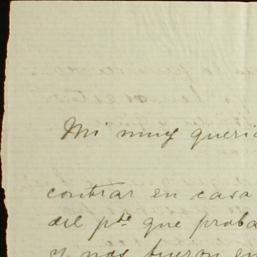 Mi muy queri
contrar en casa
del pte que proba
y nos fueron en